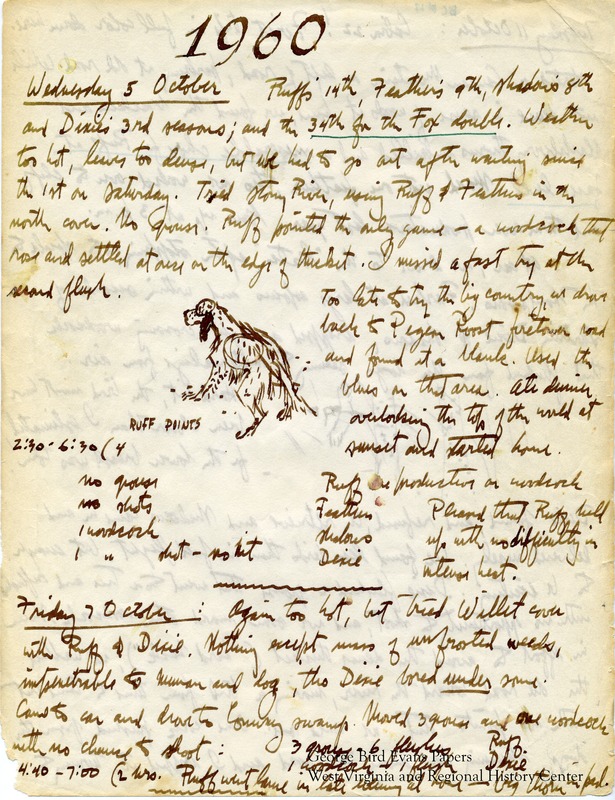 1960
Wednesday 5 October Ruff's 14th, Feather's 9th, Shadow's 8th
and Dixie's 3rd seasons; and the 34th for the Fox double. Weather
too hot, leaves too dense, but we had to go out after waiting since
the 1st on Saturday. Tried Stony River, using Ruff & Feathers in the
north cover. No grouse. Ruff pointed the only game – a woodcock that
rose and settled at once on the edge of thicket. I missed a fast try at the
second flush.
Too late to try the big country, we drove
back to Pigeon Roost firetower road
and found it a blank. Used the
blues on that area. Ate dinner
overlooking the top of the world at
sunset and started home.
RUFF POINTS
2:30 - 6:30 (4
no grouse
no shots
1 woodcock
1 " shot – no hit
Ruff one production on woodcock
Feathers
Shadows
Dixie
Pleased that Ruff held
up with no difficulty in
intense heat.
Friday 7 October : Again too hot, but tried Willet cover
with Ruff & Dixie. Nothing except mass of unfrosted weeds,
impenetrable to human and dog, tho Dixie bored under some.
Came to car and drove to swamp. Moved 3 grouse and one woodcock
with no chance to shoot :
3 grouse, 6 flushes
1 woodcock, 1 flush
Ruff.
Dixie
4:40 - 7:00 (2 hrs. Ruff went lame in late evening at – big thorn in pad
George Bird Evans Papers
West Virginia and Regional History Center